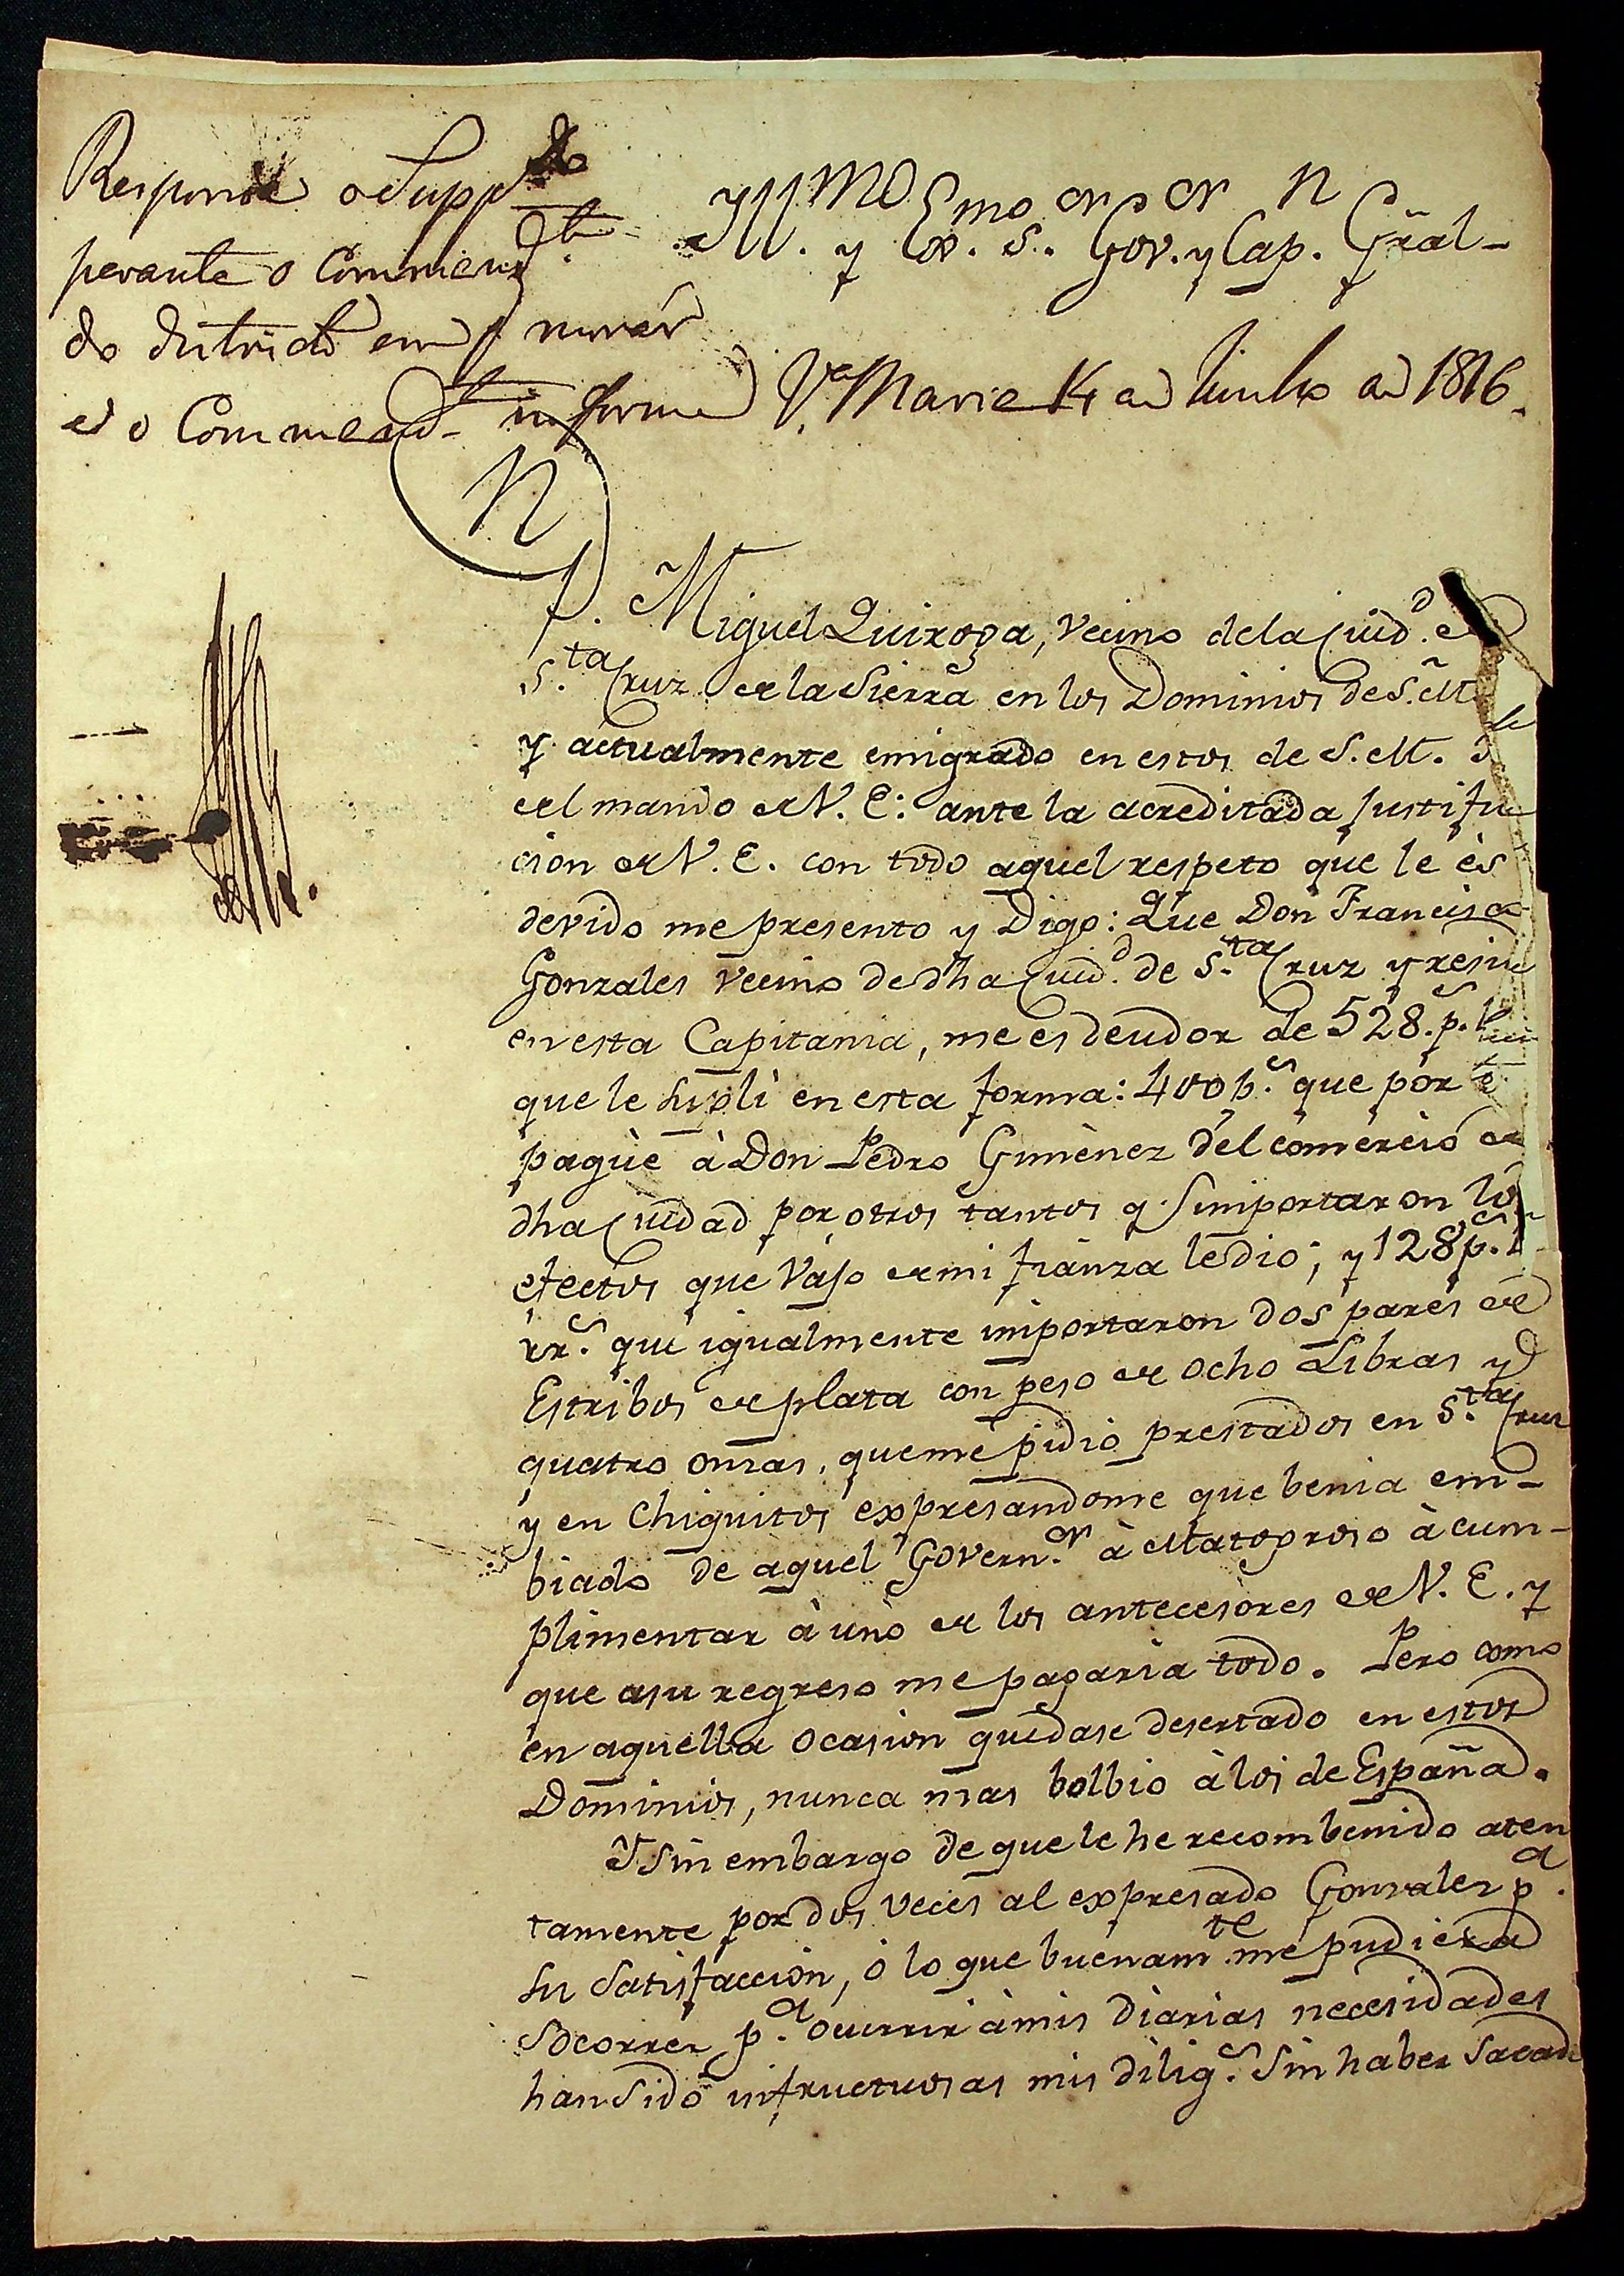 Responde o Supp.do
perante o Commend.te
do districto em
e o Commend.te informe V.a Maria 14 de Junho de 1816.
Yll.mo y Ex.mo S.or Gov.or y Cap.n Grãl
D. Miguel Quiroga, vecino de la Ciud.d de
S.ta Cruz de la Sierra en los Dominios de S. M.
y actualmente emigrado en estos de S. M.
del mando de V. E: ante la acreditada Justifica
cion de V. E. con todo aquel respeto que le és
devido me presento y Digo: Que Don Francisco
Gonzales vecino de dha Ciud.d de S.ta Cruz y reside
en esta Capitania, me es deudor de 528. p.s
que le supli en esta forma: 400 p.s que por
paguè à Don Pedro Gimènez del comercio de
dha Ciudad por otros tantos q.e importaron los
efectos que vajo de mi fianza le dio; y 128 p.s
rr.s que igualmente importaron dos pares de
Estribos de plata con peso de ocho Libras y
quatro onzas, que me pidio prestados en S.ta Cruz
y en Chiquitos expresandome que benia em-
biado de aquel Govern.or à Matogroso à cum-
plimentar à uno de los antecesores de V. E. y
que asu regreso me pagaria todo. Pero como
en aquella ocasion quedase desertado en estos
Dominios, nunca mas bolbio à los de España.
Y Sin embargo de que le he recombenido aten
tamente por dos veces al expresado Gonzales p.a
su satisfaccion, ó lo que buenam.te me pudiera
socorrer p.a ocurrir à mis diarias necesidades
han sido infructuosas mis dilig.s sin haber sacado